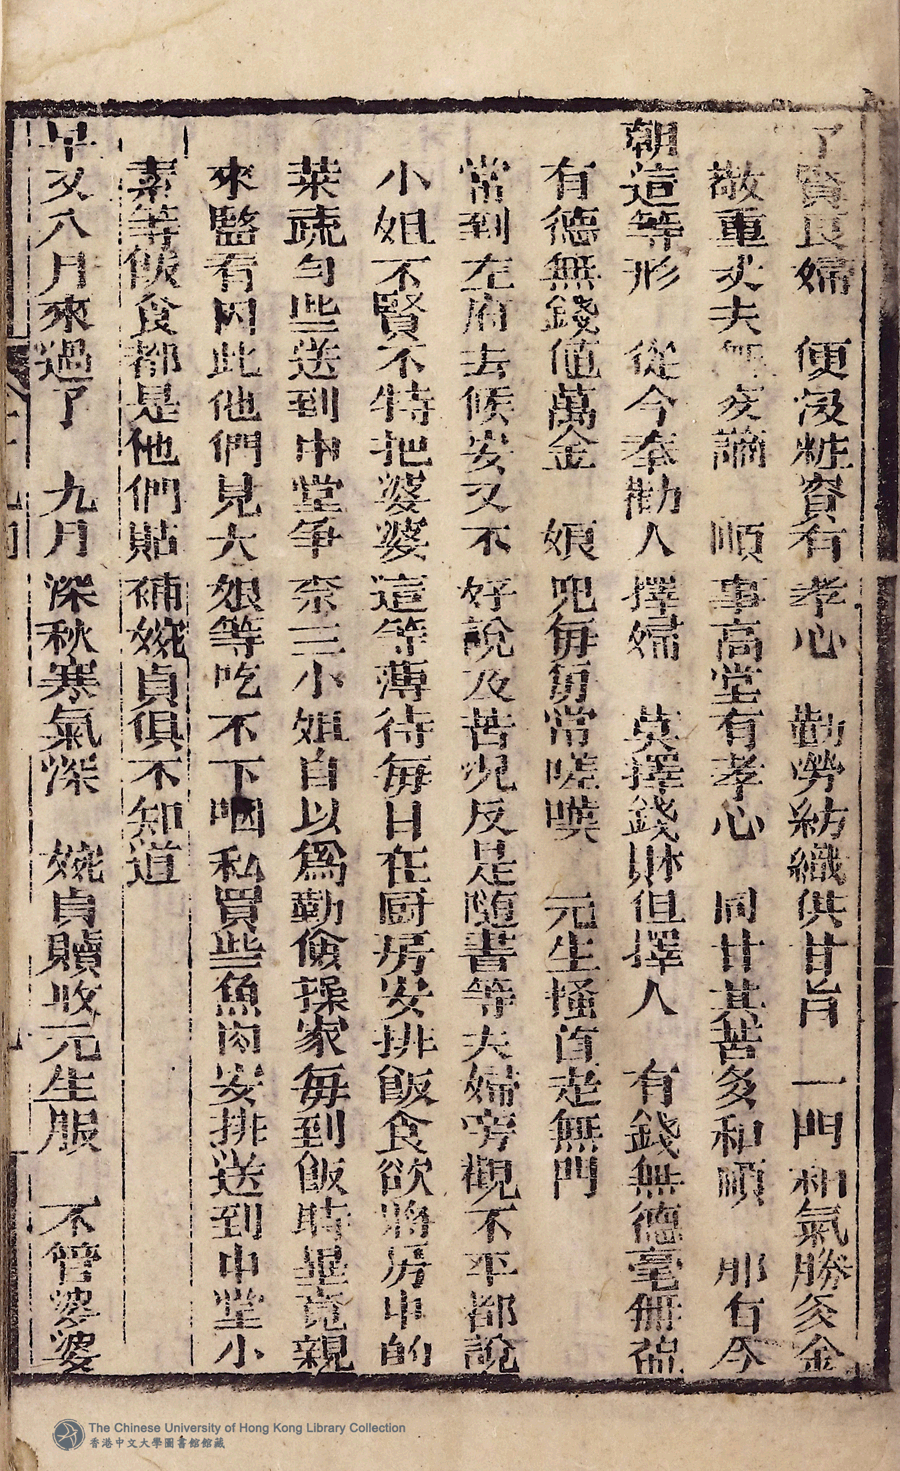 了賢良婦　便沒粧奩有孝心　勤勞紡織供甘旨　一門和氣勝多金
敬重丈夫無交謫　順事高堂有孝心　同甘共苦多和順　那有今
朝這等形　從今奉勸人擇婦　莫擇錢財但擇人　有錢無德毫無益
有德無錢值萬金　娘兒每每常嗟嘆　元生搔首走無門
常到左府去候安又不好說及苦況反是隨書等夫婦旁觀不平都說
小姐不賢不特把婆婆這等薄待每日在厨房安排飯食欲將房中的
菜疏勻些送到中堂爭奈三小姐自以爲勤儉操家每到飯時畢竟親
來監看因此他們見大娘等吃不下咽私買些魚肉安排送到中堂小
素等飯食都是他們貼補婉貞俱不知道
早又八月來過了　九月深秋寒氣深　婉貞贖收元生服　不管婆婆
The Chinese University of Hong Kong Library Collection
香港中文大學圖書館館藏